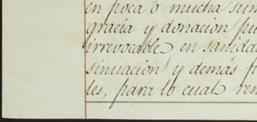 en poca ó mucha sum
gracia y donación pu
irrevocable en sanida
sinuación y demás fi
les, para lo cual ren